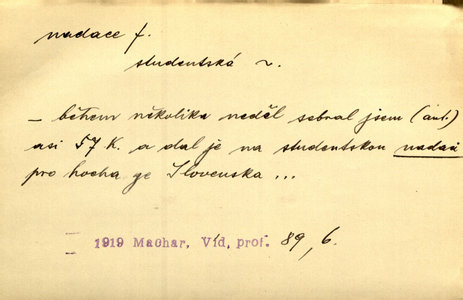 nadace f.
studentská
– během několika neděl sebral jsem (aut.)
asi 57 K. a dal je na studentskou nadaci
pro hocha ze Slovenska ...
1919 Machar, Víd, prof. 89, 6.